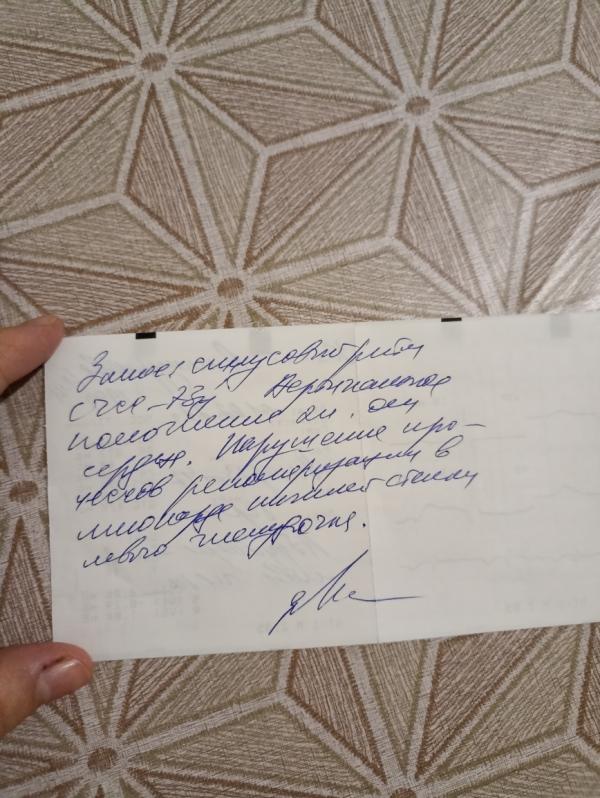 синусовый ритм
с чсс - 73у Вертикальное
положение эл. оси
сердца. Нарушение про-
цессов реполяризации в
миокарде нижней стенки
левого желудочка.